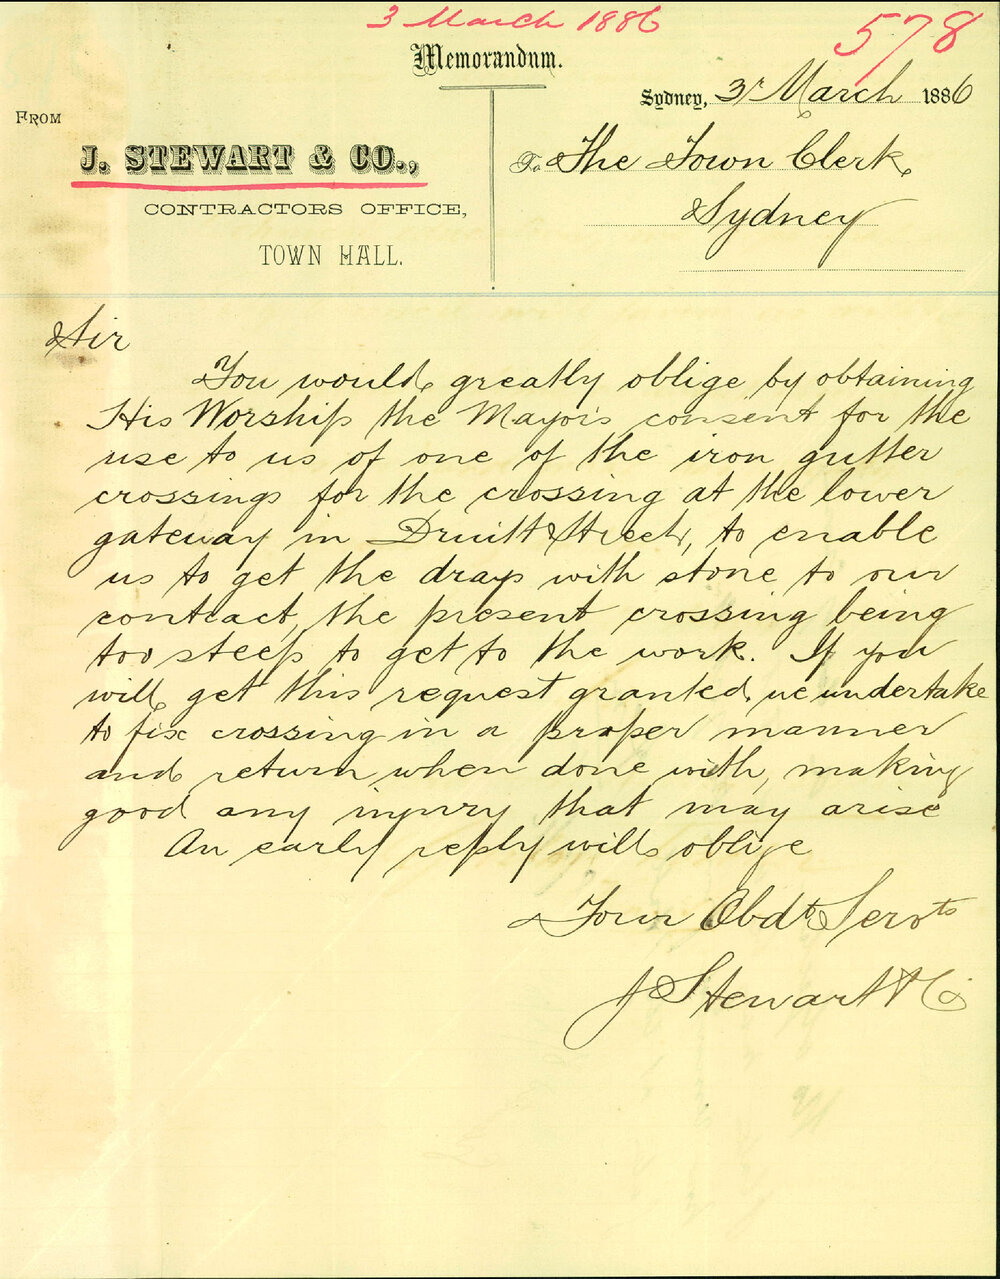 3 March 1886
578
Memorandum.
Sydney, 3r March 1886
FROM
J. STEWART & CO.,
CONTRACTORS OFFICE,
TOWN HALL.
To The Town Clerk
Sydney
Sir
You would greatly oblige by obtaining
His Worship the Mayors consent for the
use to us of one of the iron gutter
crossings for the crossing at the lower
gateway in Druitt Street, to enable
us to get the drays with stone to our
contract, the present crossing being
too steep to get to the work. If you
will get this request granted, we undertake
to fix crossing in a proper manner
and return when done with, making
good any injury that may arise
An early reply will oblige
Your Obdt Servts
J Stewart & Co